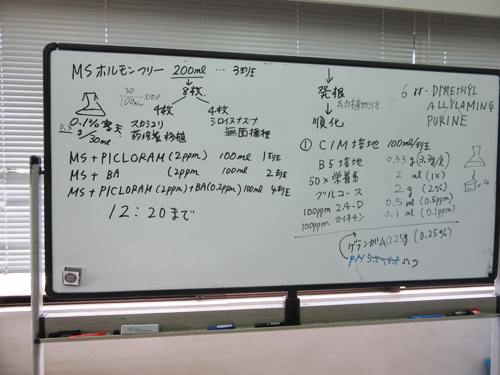 MSホルモンフリー 200ml … 3班
8枚
4枚 4枚
30
100ml
0.1%寒天
0.5
g/30ml
スカシユリ
葯培養移植
シロイヌナズナ
無菌播種
MS + PICLORAM (2ppm) 100ml 1班
MS + BA (2ppm) 100ml 2班
MS + PICLORAM (2ppm) + BA (0.2ppm) 100ml 4班
12:20まで
発根
順化
① CIM培地 100ml/班
B5培地 0.33g (3.3g/L)
50×栄養素 2 ml (1×)
グルコース 2g (2%)
100ppm 2.4-D 0.5ml (0.5ppm)
100ppm カイネチン 0.1ml (0.1ppm)
ゲランガム0.25g (0.25%)
pH
×4
6 rr-DIMETHYL
ALLYLAMING
PURINE